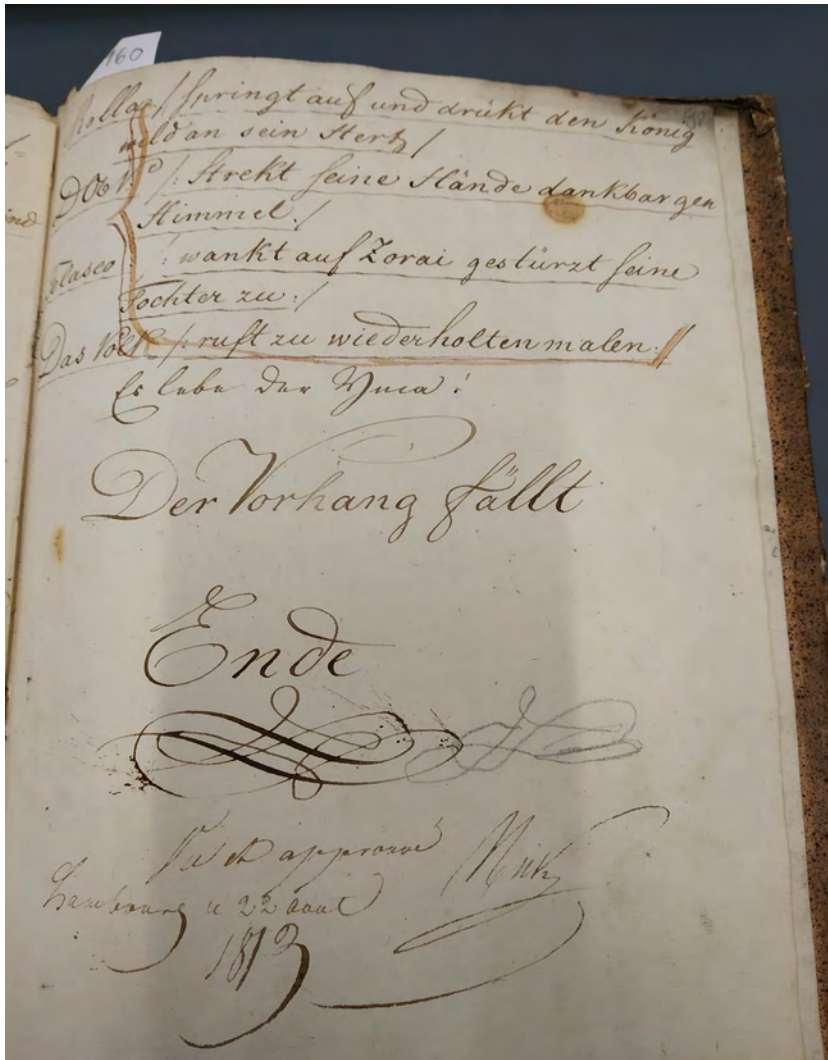 160
Rolla /: springt auf und drükt den König
wild an sein Hertz /
/: strekt seine Hände dankbar gen
Himmel :/
/: wankt auf Zorai gestürzt seine
Tochter zu :/
Das Volk /: ruft zu wiederholten malen :/
Es lebe der Ynca!
Der Vorhang fällt
Ende
Vu et approuvé
hambourg le 22 aout
1813